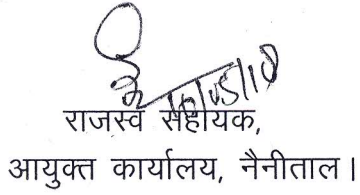 राजस्व सहायक,
आयुक्त कार्यालय, नैनीताल।